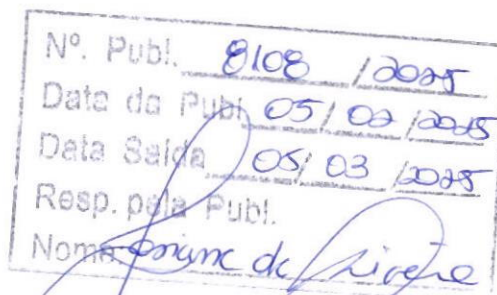 Nº. Publ. 8108 / 2025
Data da Publ. 05 / 02 / 2025
Data Saída 05 / 03 / 2025
Resp. pela Publ.
Nome de